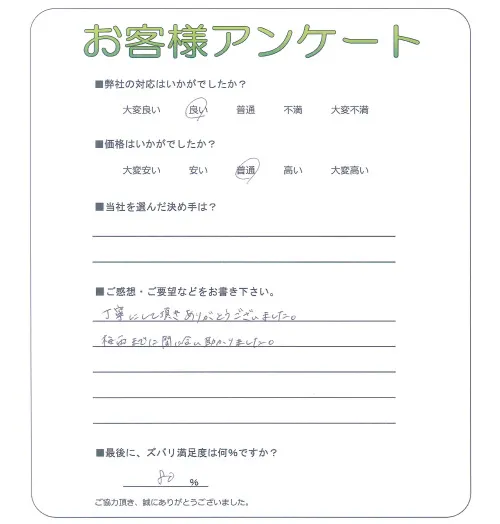 お客様アンケート
■弊社の対応はいかがでしたか？
大変良い 良い 普通 不満 大変不満
■価格はいかがでしたか？
大変安い 安い 普通 高い 大変高い
■当社を選んだ決め手は？
■ご感想・ご要望などをお書き下さい。
丁寧にして頂きありがとうございました。
梅雨までに間に合い助かりました。
■最後に、ズバリ満足度は何％ですか？
80 ％
ご協力頂き、誠にありがとうございました。